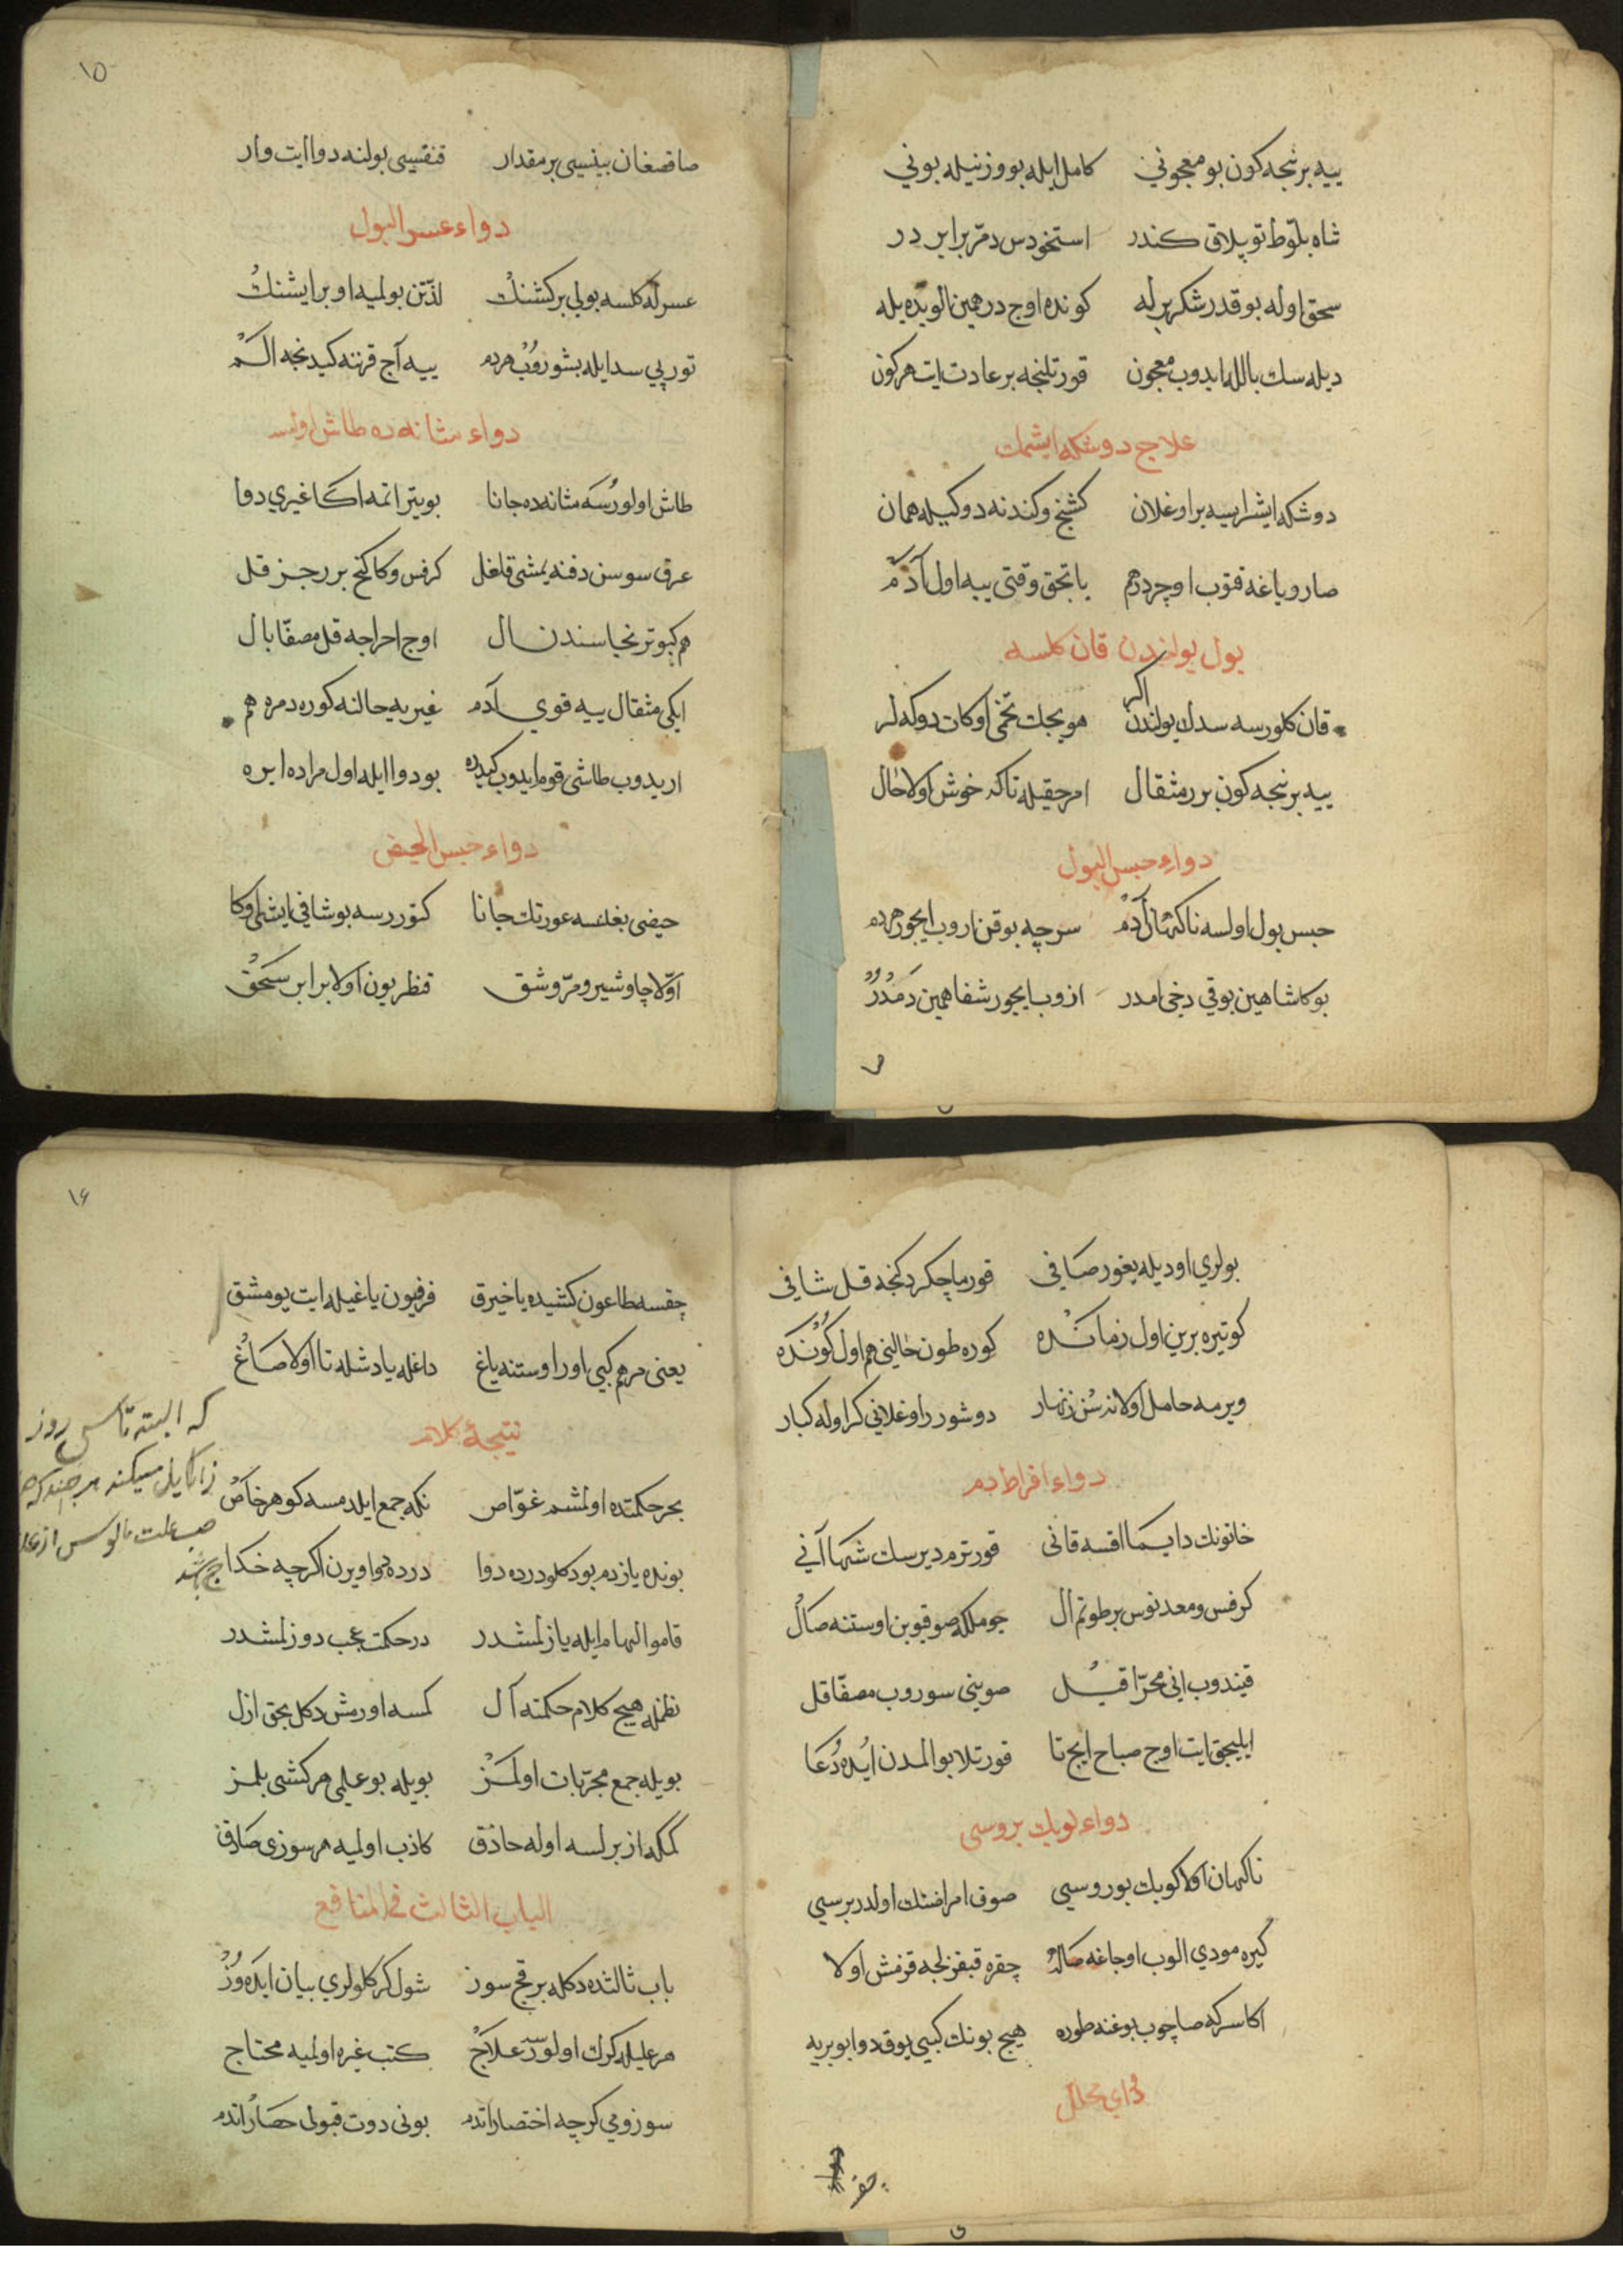 ييه بر نيجه كون بو معجوني كامل ايله بو وزنيله بوني
شاه بلوط توپلاق كندر استخودس دمر برابر در
سحق اوله بو قدر شكر برله كونده اوج درهمين الوب ييله
ديله سك بال ايله ايدوب معجون قورتلنجه بر عادت ايت هر كون
علاج دوشكه ايشمك
دوشكه ايشرايسه بر اوغلان كشنج و كندنه دوكيله همان
صارو ياغه قتوب اوچر درهم ياتجق وقتى ييه اول آدم
بول يولندن قان كلسه
قان كلورسه سدك يولندن اكر هويجك تخمى اوكات دوكه لر
ييه بر نيجه كون برر مثقال امرحقيله تاكه خوش اولا حال
دواء حبس البول
حبس بول اولسه ناكهان آدم سرچه بوقن ازوب ايچور هردم
بوكا شاهين بوقي دخى امدر ازوب ايچور شفا همين دمدر
١٥
صاقصغان بينيسى بر مقدار قنقيسى بولنه دوا ايت وار
دواء عسر البول
عسرله كلسه بولي بر كشنك لذتن بولميه اوبر ايشنك
توربي سد ايله بشوروب هردم ييه آج قرننه كيدنجه الم
دواء مثانه ده طاش اولسه
طاش اولورسه مثانه ده جانا بويتر اتمه اكا غيري دوا
عرق سوسن دفنه يمشى قاغل كرفس و كاكنج برر جز قل
هم كبوتر نجاسندن ال اوج اجراجه قل مصفا بال
ايكى مثقال ييه قوي آدم غير يه حالنه كوره دمره هم
اريدوب طاشى قوم ايدوب كيده بو دوا ايله اول مراده ايره
دواء حبس الحيض
حيضى بغلنسه عورتك جانا كتوررسه بو شافي ايشله اوكا
اولا چاوشير و مر و شق قنطريون اولا برابر سحق
بولري اوديله يغور صافى قورما چكردكنجه قل شافى
كوتيره برين اول زمانده كوره طون حالينى هم اول كونده
ويرمه حامل اولانه سن زنهار دوشورر اوغلانى كر اوله كبار
دواء افراط دم
خاتونك دايما اقسه قانى قورترم ديرسك شها آنى
كرفس و معدنوس بر طوتم ال چوملكه صو قيوبن اوستنه صال
قيندوب انى محرا قيل صوينى سوروب مصفا قل
ايليجق ايت اوج صباح ايچ تا قورتلا بو المدن ايده دعا
دواء كوبك بروسى
ناكهان اولا كوبك بوروسى صوق امراضنك اولدر بريسى
كيره مودي الوب اوجاغه صاله چقره قبقزلجه قزمش اولا
اكا سركه صاچوب بوغنه طوره هيچ بونك كيبى يوق دوا بو يريه
١٦
چقسه طاعون كشيده يا خيرق فرفيون ياغيله ايت يومشق
يعنى مرهم كيبى اور اوستنه ياغ داغله يا دشله تا اولا صاغ
نتيجهٔ كلام
بحر حكمتده اولمشم غواص نكه جمع ايلدمسه كوهر خاص
بونده يازدم بودكلو درده دوا درده دوا ويرن اكرچه خدا
قامو الهام ايله يازلمشدر در حكمت عجب دوزلمشدر
نظمله هيچ كلام حكمته ال كمسه اورمش دكل بحق ازل
بويله جمع مجربات اولمز بويله بو علمى هر كشى بلمز
كمكه ازبرلسه اوله حاذق كاذب اولميه هر سوزى صادق
الباب الثالث فى المنافع
باب ثالثده دكله بر قچ سوز شول كركلولري بيان ايده وز
هر عليله كرك اولورسه علاج كتب غيره اولميه محتاج
سوزومي كرچه اختصار اتدم بونى دوت قبولى حصار اتدم
كه البته تاسى روز